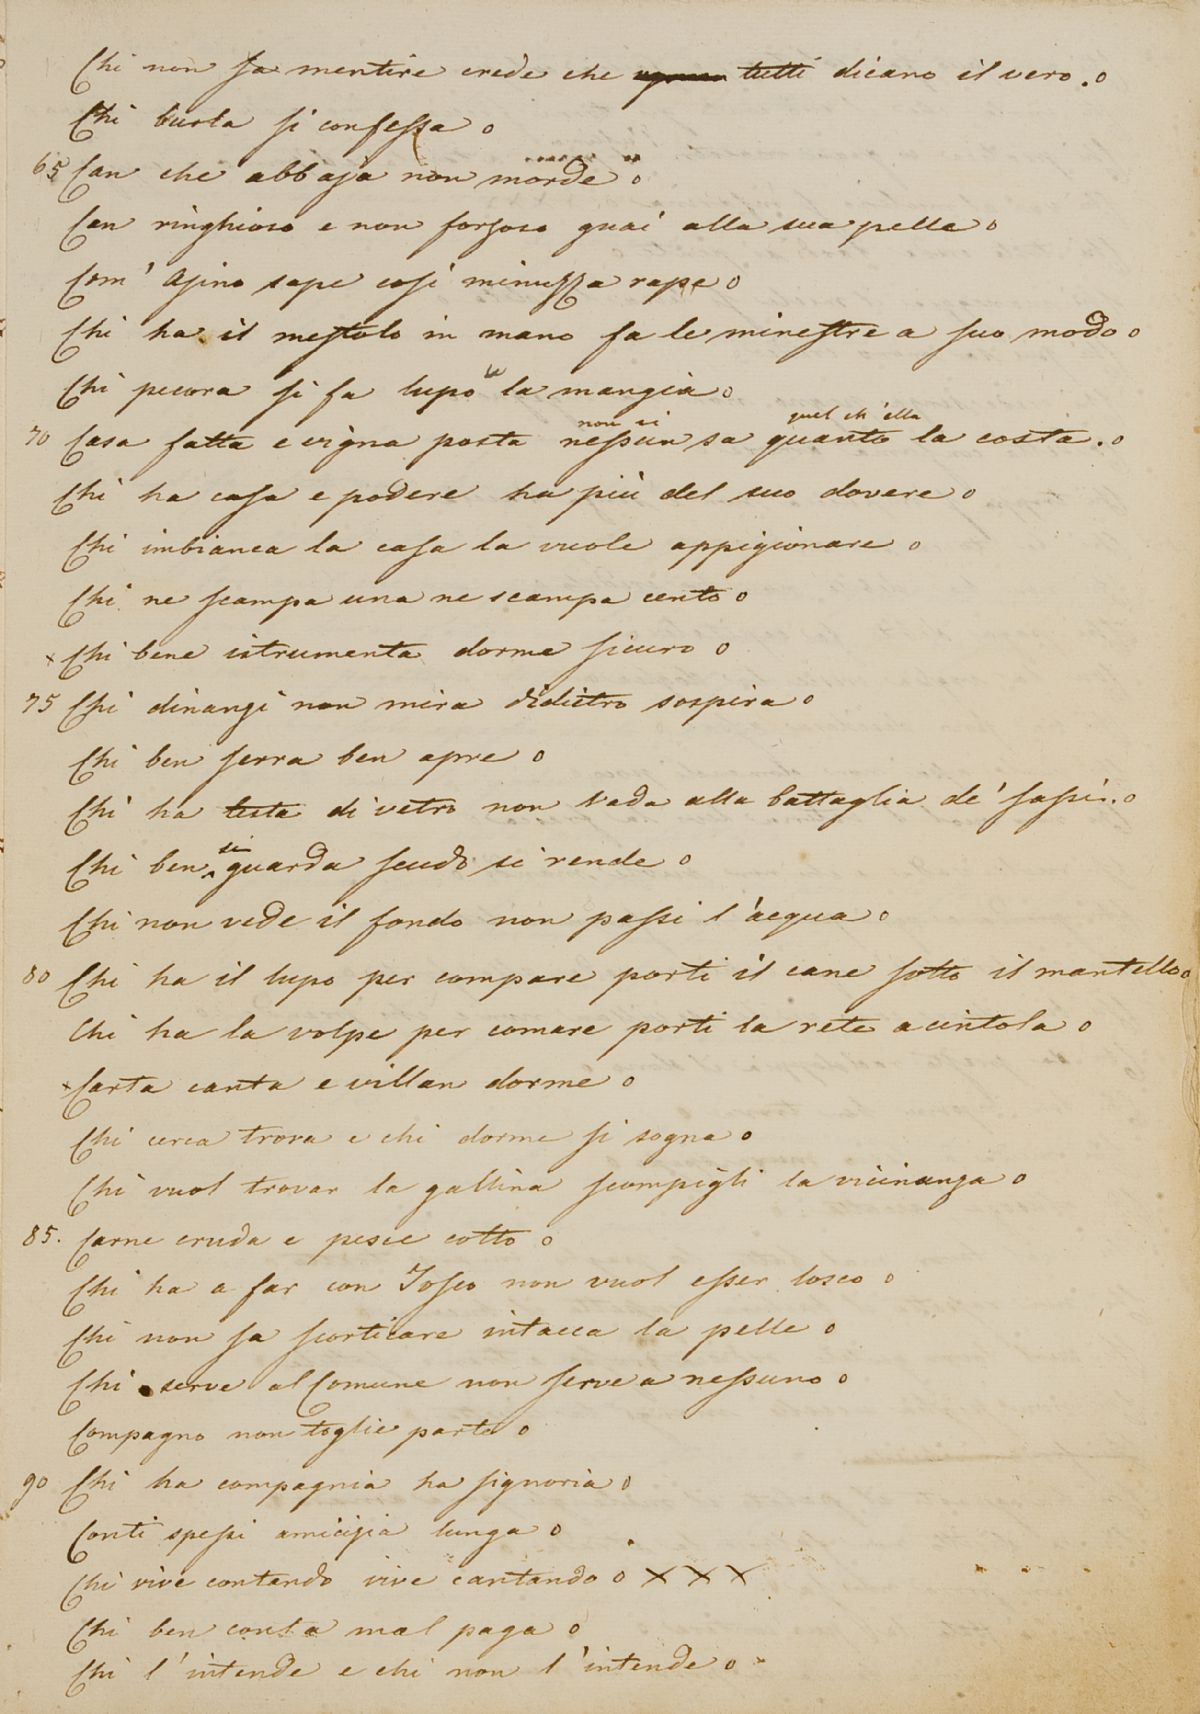 Chi non sa mentire crede che tutti dicano il vero. o
Chi burla si confessa o
65 Can che abbaja non morde o
Can ringhioso e non forzoso guai alla sua pelle o
Com' Asino sape così minuzza rape o
Chi ha il mestolo in mano fa le minestre a suo modo o
Chi pecora si fa lupo la mangia o
non si quel ch' ella
70 Casa fatta e vigna posta nessun sa quanto la costa. o
Chi ha casa e podere ha più del suo dovere o
Chi imbianca la casa la vuole appigionare o
Chi ne scampa una ne scampa cento o
x Chi bene istrumenta dorme sicuro o
75 Chi dinanzi non mira didietro sospira o
Chi ben serra ben apre o
Chi ha testa di vetro non vada alla battaglia de' sassi. o
si
Chi ben guarda scudo si rende o
Chi non vede il fondo non passi l'acqua o
80 Chi ha il lupo per compare porti il cane sotto il mantello o
Chi ha la volpe per comare porti la rete a cintola o
x Carta canta e villan dorme o
Chi cerca trova e chi dorme si sogna o
Chi vuol trovar la gallina scompigli la vicinanza o
85. Carne cruda e pesce cotto o
Chi ha a far con Tosco non vuol esser losco o
Chi non sa scorticare intacca la pelle o
Chi serve al Comune non serve a nessuno o
Compagno non toglie parte o
90 Chi ha compagnia ha signoria o
Conti spessi amicizia lunga o
Chi vive contando vive cantando o x x x
Chi ben conta mal paga o
Chi l'intende e chi non l'intende o